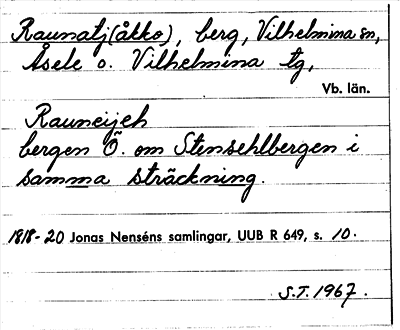 Raunatj(åkko), berg, Vilhelmina sn,
Åsele o. Vilhelmina tg,
Vb. län.
Rauneijeh
bergen Ö. om Stensehlbergen i
samma sträckning.
1818-20 Jonas Nenséns samlingar, UUB R 649, s. 10.
S.T. 1967.